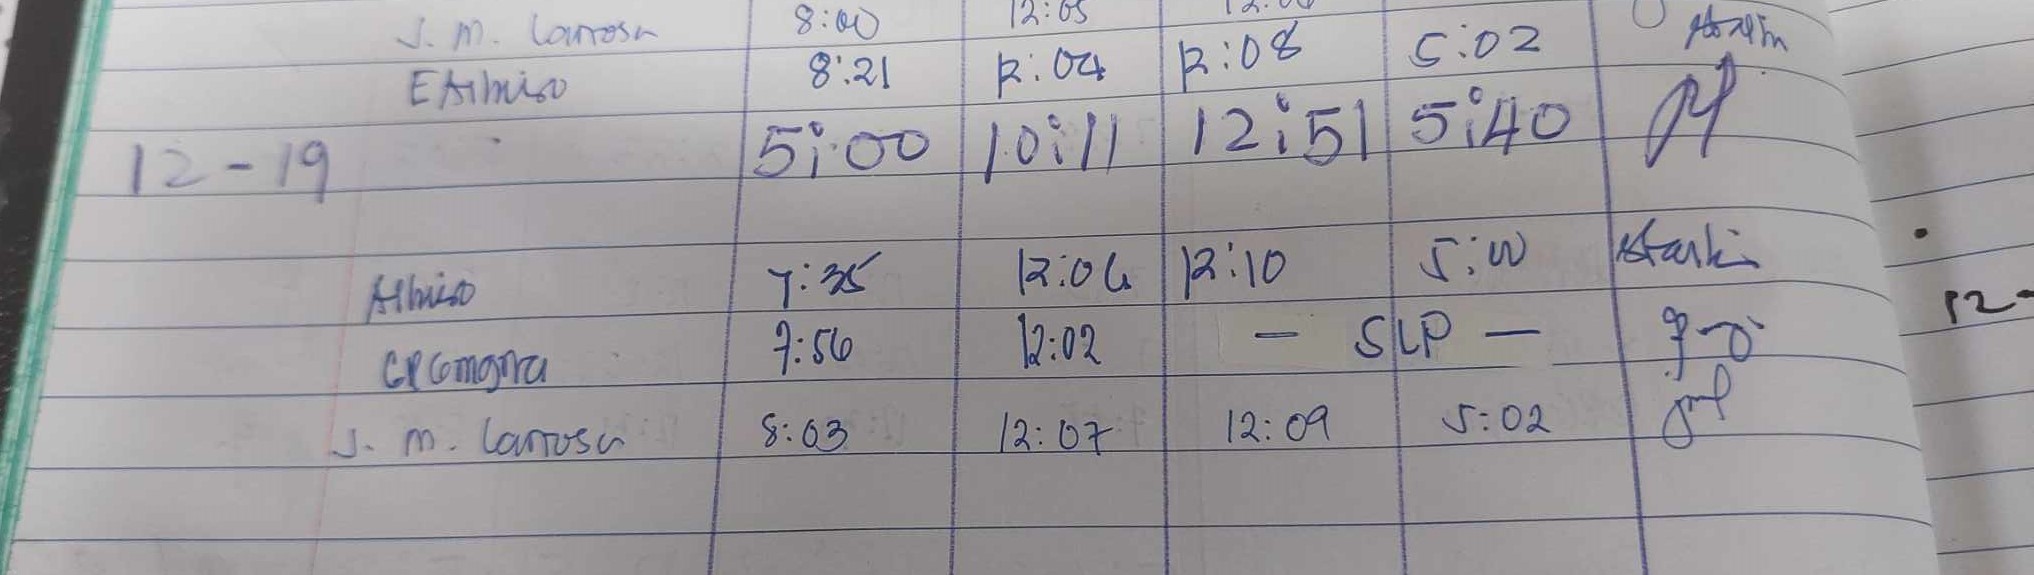 J. M. Larrosa 8:00 12:05
EAlbiso 8:21 12:04 12:08 5:02
12-19 5:00 10:11 12:51 5:40
Albiso 7:35 12:06 12:10 5:00
7:56 12:02 - SLP -
J. M. Larrosa 8:03 12:07 12:09 5:02
12-